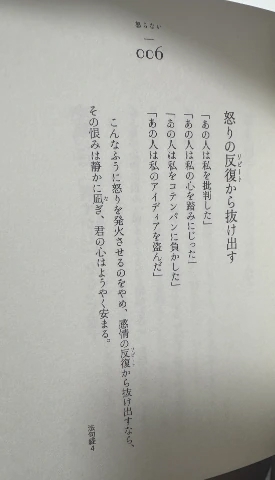 怒らない
006
怒りの反復から抜け出す
リピート
「あの人は私を批判した」
「あの人は私の心を踏みにじった」
「あの人は私をコテンパンに負かした」
「あの人は私のアイディアを盗んだ」
こんなふうに怒りを発火させるのをやめ、感情の反復から抜け出すなら、
リピート
その恨みは静かに凪ぎ、君の心はようやく安まる。
な
法句経4